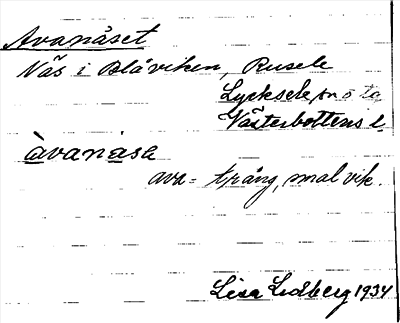 Avanäset
Näs i Blåviken, Rusele
Lycksele
Västerbottens l.
àvanäsa
ava = trång, smal vik.
Lisa Lidberg 1934